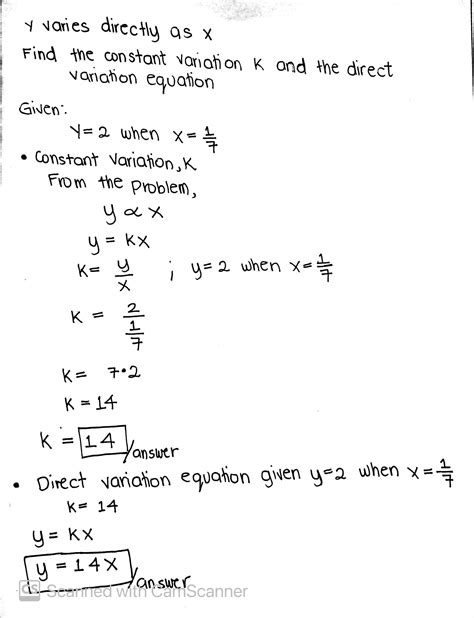 Y varies directly as x
Find the constant variation K and the direct
variation equation
Given:
Y=2 when x=1/7
• Constant Variation, K
From the problem,
y ∝ x
y = kx
K= y/x ; y=2 when x=1/7
K = 2/(1/7)
K= 7•2
K = 14
K = 14 answer
• Direct variation equation given y=2 when x=1/7
K= 14
y = kx
y = 14x answer
CS Scanned with CamScanner